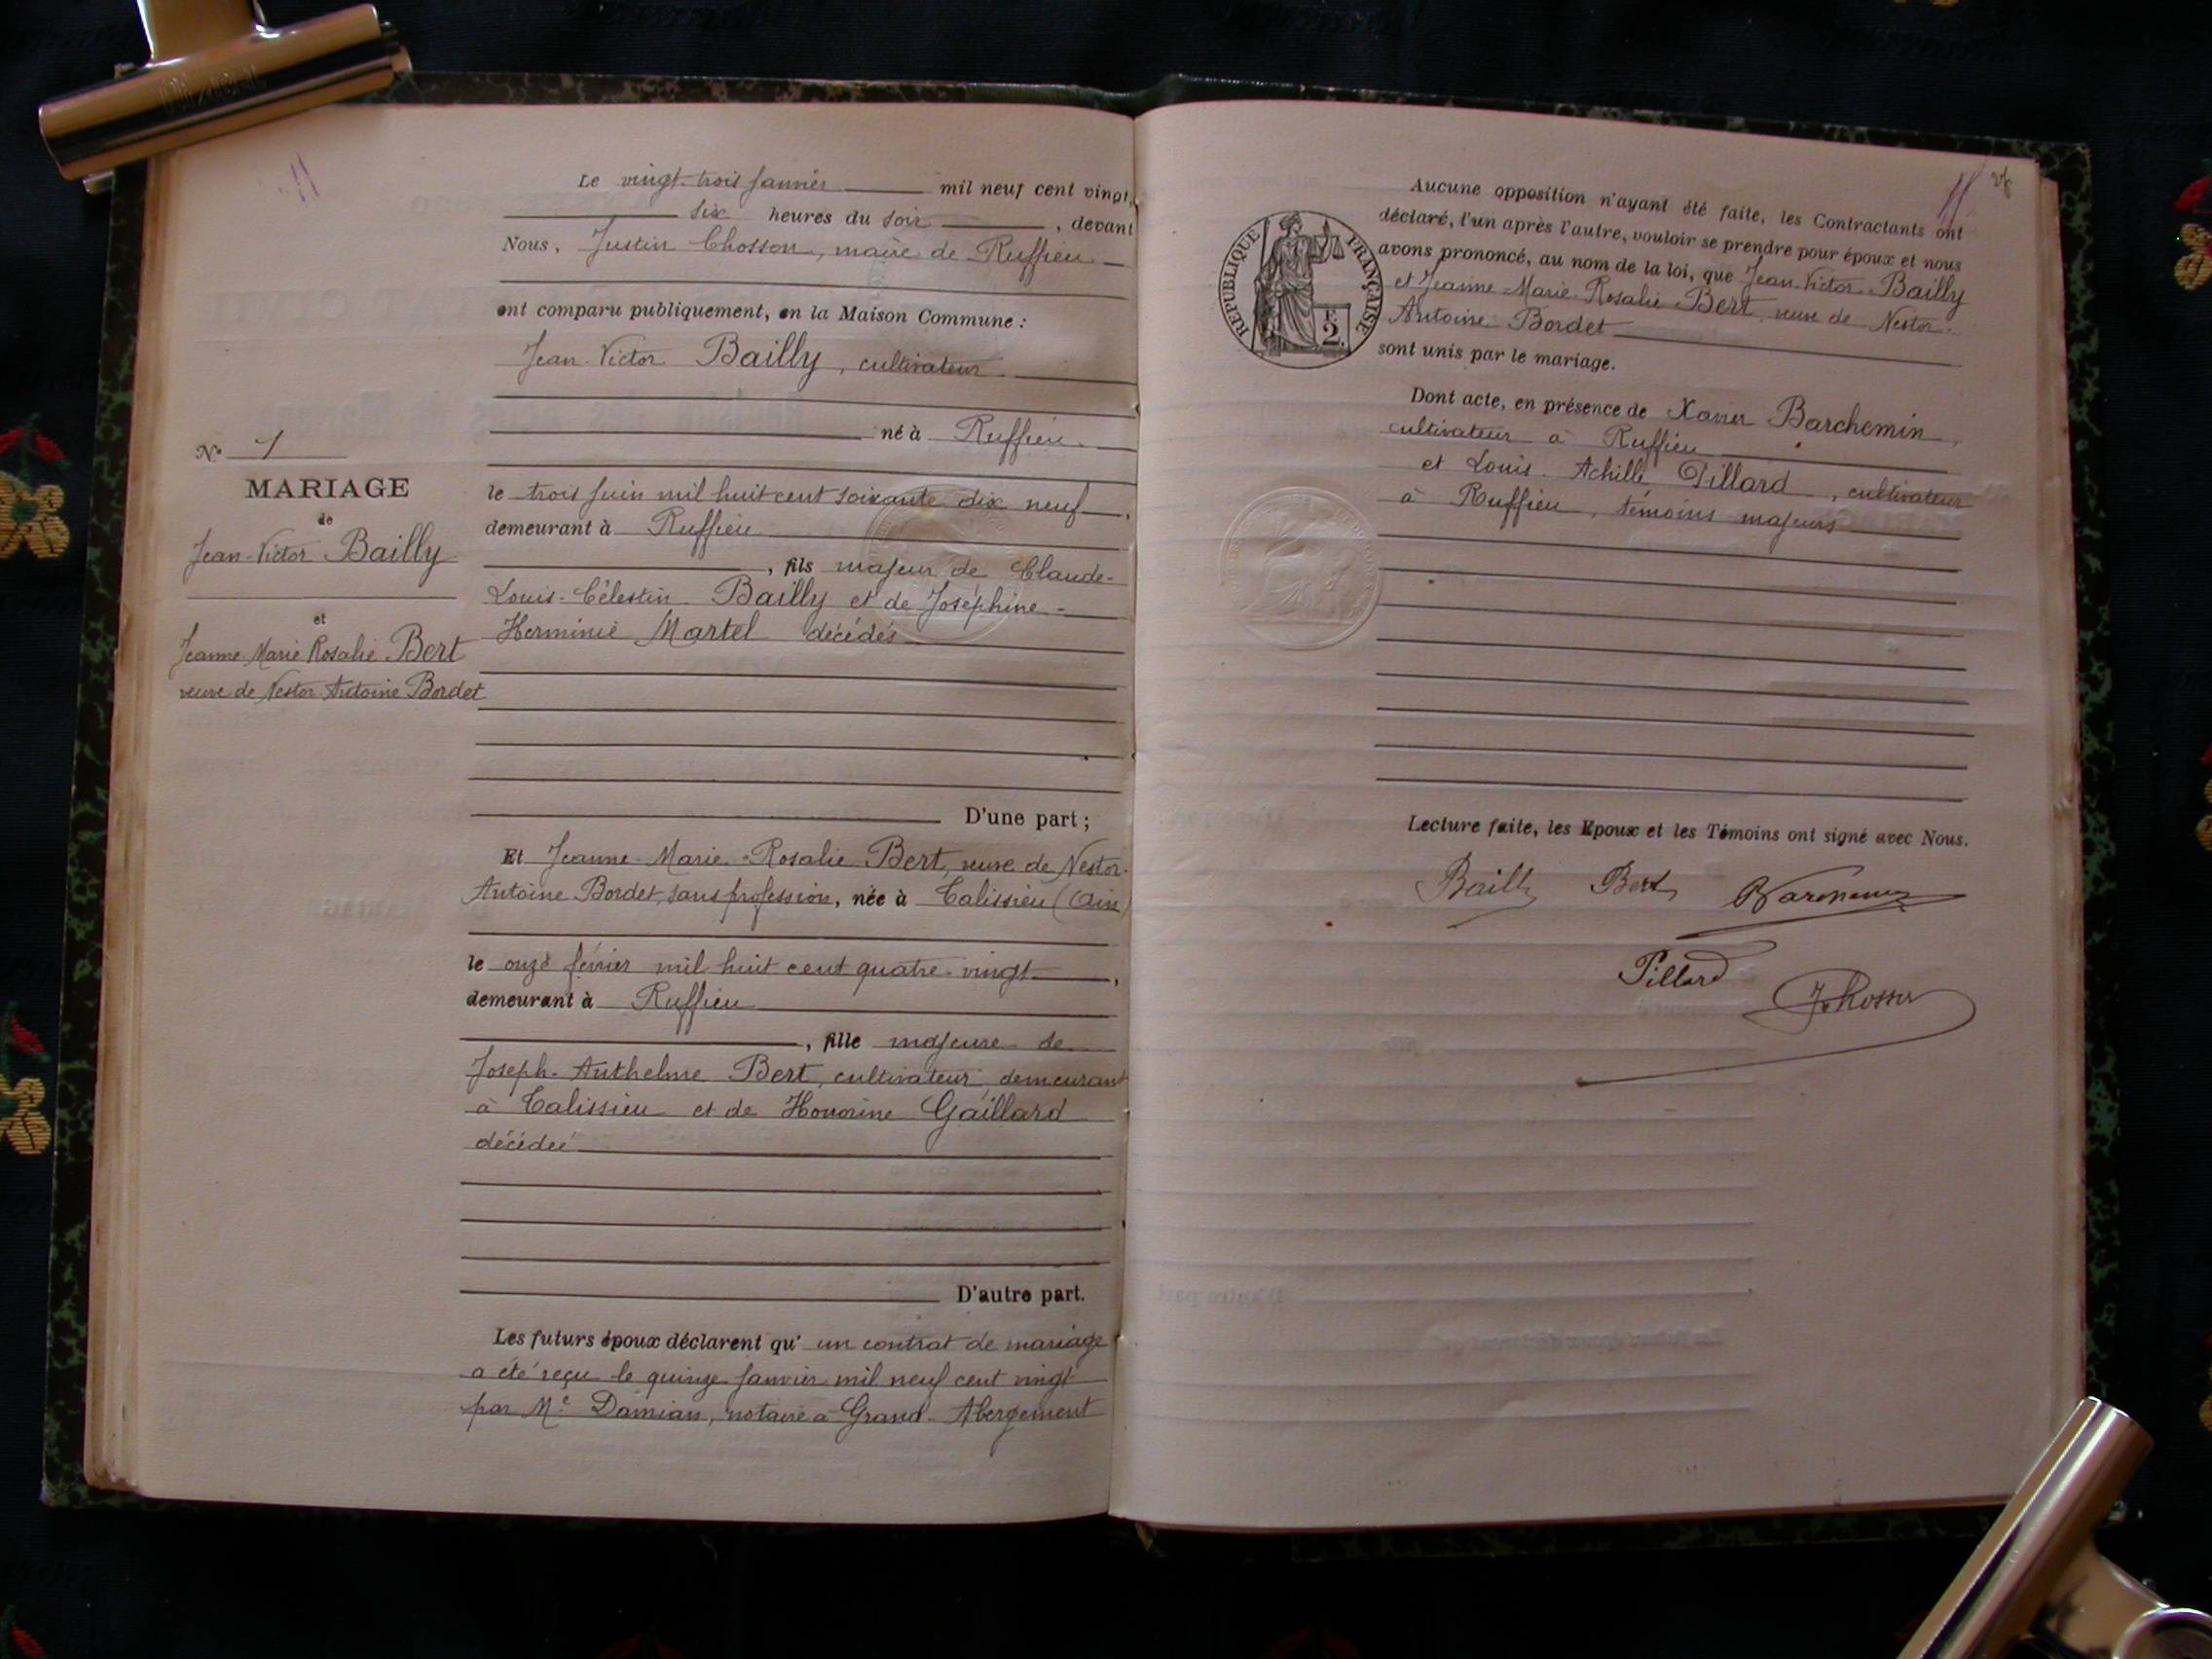 Le vingt-trois janvier mil neuf cent vingt,
six heures du soir, devant
Nous, Justin Chosson, maire de Ruffieu
ont comparu publiquement, en la Maison Commune :
Jean-Victor Bailly, cultivateur
né à Ruffieu
N° 1
MARIAGE
de
Jean-Victor Bailly
et
Jeanne Marie Rosalie Bert
veuve de Nestor Antoine Bordet
le trois juin mil huit cent soixante dix neuf,
demeurant à Ruffieu
, fils majeur de Claude-
Louis-Célestin Bailly et de Joséphine-
Herminie Martel décédés
D'une part ;
Et Jeanne-Marie-Rosalie Bert, veuve de Nestor-
Antoine Bordet, sans profession, née à Talissieu (Ain)
le onze février mil huit cent quatre-vingt,
demeurant à Ruffieu
, fille majeure de
Joseph-Anthelme Bert, cultivateur, demeurant
à Talissieu et de Honorine Gaillard
décédée
D'autre part.
Les futurs époux déclarent qu' un contrat de mariage
a été reçu le quinze janvier mil neuf cent vingt
par Me Damian, notaire à Grand-Abergement
11
Aucune opposition n'ayant été faite, les Contractants ont
déclaré, l'un après l'autre, vouloir se prendre pour époux et nous
avons prononcé, au nom de la loi, que Jean-Victor Bailly
et Jeanne-Marie-Rosalie Bert, veuve de Nestor-
Antoine Bordet
sont unis par le mariage.
REPUBLIQUE FRANÇAISE
2
Dont acte, en présence de Xavier Barchemin,
cultivateur à Ruffieu
et Louis-Achille Pillard, cultivateur
à Ruffieu, témoins majeurs
Lecture faite, les Epoux et les Témoins ont signé avec Nous.
Bailly Bert
Pillard
JChosson